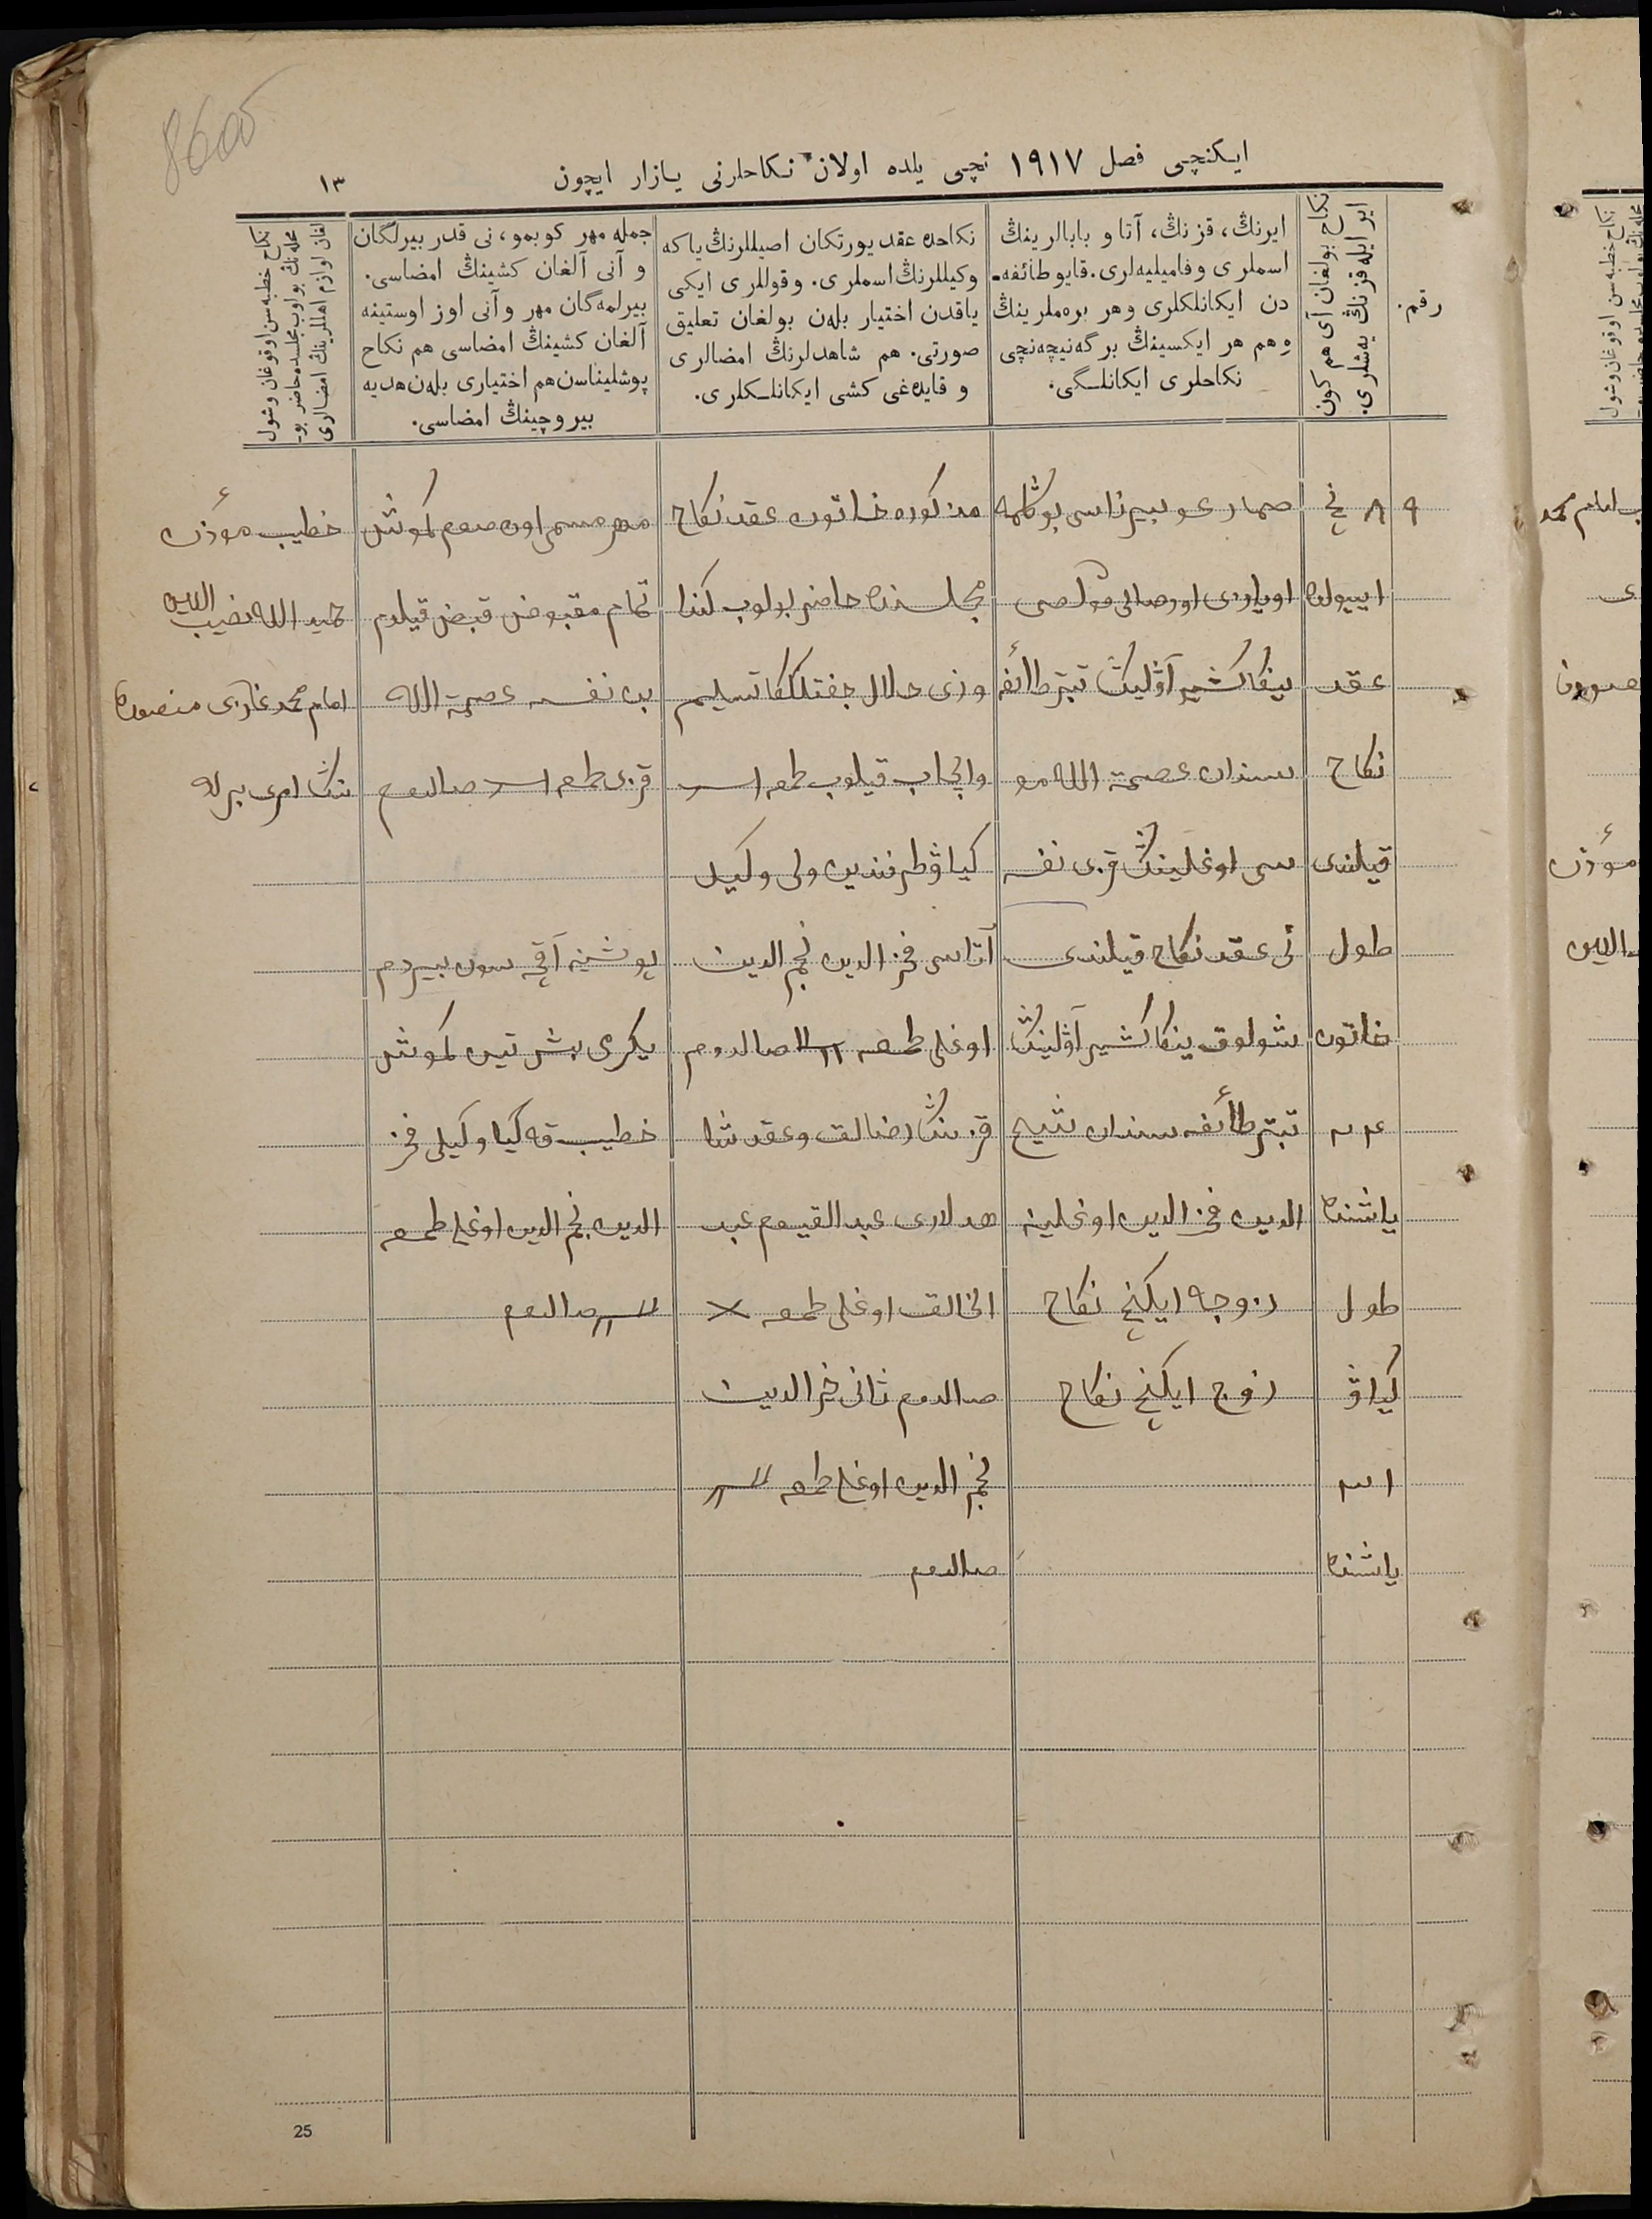 ایکنچی فصل ١٩١٧ نچی یلده اولان نکاحلرنی یازار ایچون
١٣
رقم.
نکاح بولغان آی هم کون
ایر ایله قزنڭ یه‌شلری.
ایرنڭ، قزنڭ، آتا و بابالرینڭ
اسملری وفامیلیه‌لری. قایو طائفه-
دن ایکانلکلری وهر بره‌ملرینڭ
وهم هر ایکسینڭ برگه‌نیچه‌نچی
نکاحلری ایکانلگی.
نکاحده عقد یورتکان اصیللرنڭ یاکه
وکیللرنڭ اسملری. وقوللری ایکی
یاقدن اختیار بلەن بولغان تعلیق
صورتی. هم شاهدلرنڭ امضالری
و قایده‌غی کشی ایکانلکلری.
جمله مهر کوبمو، نی قدر بیرلگان
و آنی آلغان کشینڭ امضاسی.
بیرلمه‌گان مهر و آنی اوز اوستینه
آلغان کشینڭ امضاسی هم نکاح
پوشلیناسن هم اختیاری بلەن هدیه
بیروچینڭ امضاسی.
نکاح خطبه سن اوقوغان وشول
محله‌نڭ بولوب مجلسده حاضر بو-
لغان اوازم اهللرینڭ امضالری
٩
٨ نچی
اییولده
عقد
نکاح
قیلندی
طول
خاتون
یاشنده
طول
کیاو
یاشنده
صماری غوبیرناسی بوگلمه
اویازی
ینکا کشیر آولینڭ تیپتر طائفه
سندان عصمة الله مو
سی اوغلینڭ قزی نفسه
نی عقد نکاح قیلندی
شولوق ینکا کشیر آولینڭ
تیپتر طائفه سندان شیخ
الدین فخر الدین اوغلینه
زوجه ایکنچی نکاح
زوج ایکنچی نکاح
مذکوره خاتون عقد نکاح
مجلسنده حاضر بولوب
وزی حلال جفتلککا تسلیم
وایجاب قیلوب طمغه
کیاو طرفندین ولی وکیل
آتاسی فخر الدین نجم الدین
اوغلی طمغه صالدوم
قزنڭ رضالق وعقد شا
هدلاری عبد القیوم عبد
الخالق اوغلی طمغه ×
صالدوم ثانی فخر الدین
نجم الدین اوغلی طمغه
صالدوم
مهر مسمی اون صوم کموش
تمام مقبوض قبض قیلدم
بن نفسه عصمة الله
قزی طمغه صالدوم
پوشینه آقچه سون بیردم
یکرمی بش تین کموش
خطیب قه کیاو وکیلی فخر
الدین نجم الدین اوغلی طمغه
صالدوم
خطیب مؤذن
حمید الله نصیب الدین
امام محمد غازی منصوره
نڭ امری برله
25